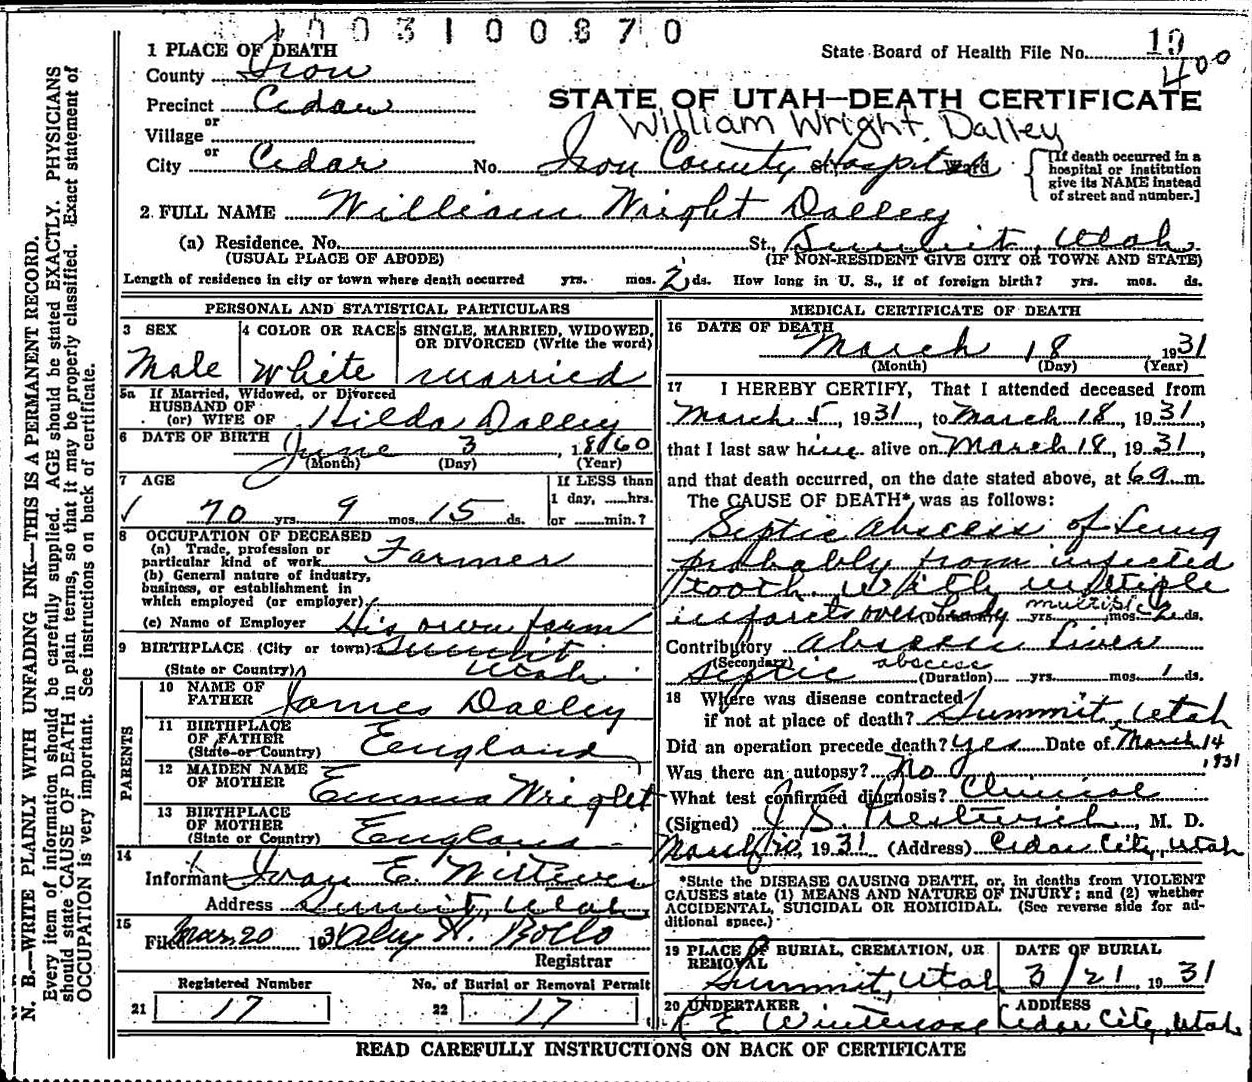 1003100870
1 PLACE OF DEATH
State Board of Health File No. 19
400
County Iron
Precinct Cedar
or
Village
or
STATE OF UTAH—DEATH CERTIFICATE
William Wright Dalley
City Cedar No. Iron County Hospital
[If death occurred in a
hospital or institution
give its NAME instead
of street and number.]
2. FULL NAME William Wright Dalley
(a) Residence. No. St., Summit, Utah
(USUAL PLACE OF ABODE) (IF NON-RESIDENT GIVE CITY OR TOWN AND STATE)
Length of residence in city or town where death occurred yrs. mos. 2 ds. How long in U. S., if of foreign birth? yrs. mos. ds.
PERSONAL AND STATISTICAL PARTICULARS
3 SEX 4 COLOR OR RACE 5 SINGLE, MARRIED, WIDOWED,
OR DIVORCED (Write the word)
Male White Married
5a If Married, Widowed, or Divorced
HUSBAND OF
(or) WIFE OF Hilda Dalley
6 DATE OF BIRTH June 3, 1860
(Month) (Day) (Year)
7 AGE If LESS than
1 day, ......hrs.
70 yrs. 9 mos. 15 ds. or ......min.?
8 OCCUPATION OF DECEASED
(a) Trade, profession or
particular kind of work Farmer
(b) General nature of industry,
business, or establishment in
which employed (or employer)
(c) Name of Employer His own farm
9 BIRTHPLACE (City or town) Summit
(State or Country) Utah
PARENTS
10 NAME OF
FATHER James Dalley
11 BIRTHPLACE
OF FATHER
(State or Country) England
12 MAIDEN NAME
OF MOTHER Emma Wright
13 BIRTHPLACE
OF MOTHER
(State or Country) England
14
Informant E.
Address Summit, Utah
15
Filed Mar. 20 193
Registrar
Registered Number No. of Burial or Removal Permit
21 17 22 17
MEDICAL CERTIFICATE OF DEATH
16 DATE OF DEATH
March 18, 1931
(Month) (Day) (Year)
17 I HEREBY CERTIFY, That I attended deceased from
March 5, 1931, to March 18, 1931,
that I last saw him alive on March 18, 1931,
and that death occurred, on the date stated above, at m.
The CAUSE OF DEATH*, was as follows:
Septic Abscess of Lung
probably from infected
tooth. With multiple
infarcts over body (Duration) yrs. mos. 2 ds.
Contributory Abscess Liver
(Secondary)
Septic abscess (Duration) yrs. mos. 1 ds.
18 Where was disease contracted
if not at place of death? Summit, Utah
Did an operation precede death? Yes Date of March 14
1931
Was there an autopsy? No
What test confirmed diagnosis? Clinical
(Signed) M. D.
March 20, 1931 (Address) Cedar City, Utah
*State the DISEASE CAUSING DEATH, or, in deaths from VIOLENT
CAUSES state (1) MEANS AND NATURE OF INJURY; and (2) whether
ACCIDENTAL, SUICIDAL OR HOMICIDAL. (See reverse side for ad-
ditional space.)
19 PLACE OF BURIAL, CREMATION, OR
REMOVAL
Summit, Utah
DATE OF BURIAL
3/21 1931
20 UNDERTAKER ADDRESS
Cedar City, Utah
READ CAREFULLY INSTRUCTIONS ON BACK OF CERTIFICATE
N. B.—WRITE PLAINLY WITH UNFADING INK—THIS IS A PERMANENT RECORD.
Every item of information should be carefully supplied. AGE should be stated EXACTLY. PHYSICIANS
should state CAUSE OF DEATH in plain terms, so that it may be properly classified. Exact statement of
OCCUPATION is very important. See instructions on back of certificate.